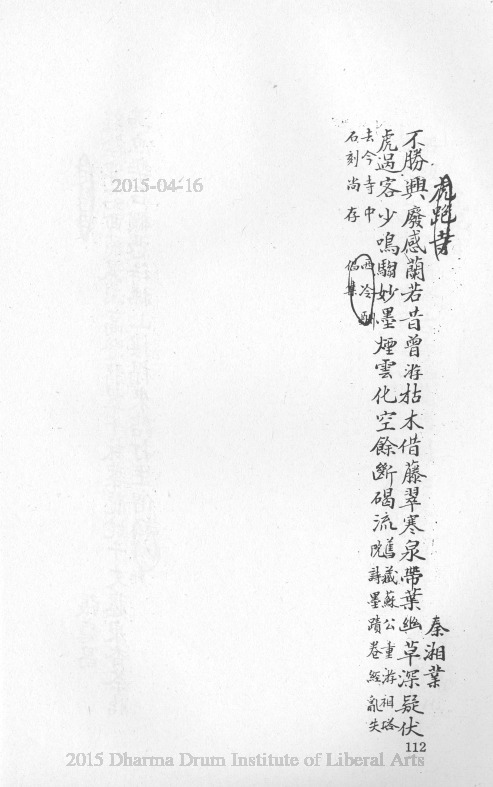 虎跑寺
秦湘業
不勝興廢感蘭若昔曾游枯木借藤翠寒泉帶葉幽草深疑伏
虎過客少鳴騶妙墨煙雲化空餘斷碣流
舊藏蘇公重游祖塔
院詩墨蹟卷經亂失
去今寺中
石刻尚存
西冷酬
倡集
112
2015-04-16
2015 Dharma Drum Institute of Liberal Arts